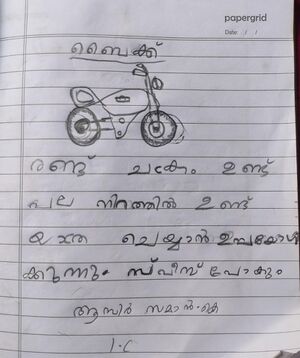 papergrid
Date: / /
ബൈക്ക്
രണ്ട് ചക്രം ഉണ്ട്
പല നിറത്തിൽ ഉണ്ട്
യാത്ര ചെയ്യാൻ ഉപയോഗി
ക്കുന്നു. സ്പീഡ് പോകും
ആസിർ സമാൻ.കെ
1-C